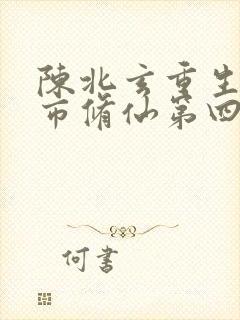 陳北玄重生
市脩仙第四
何書